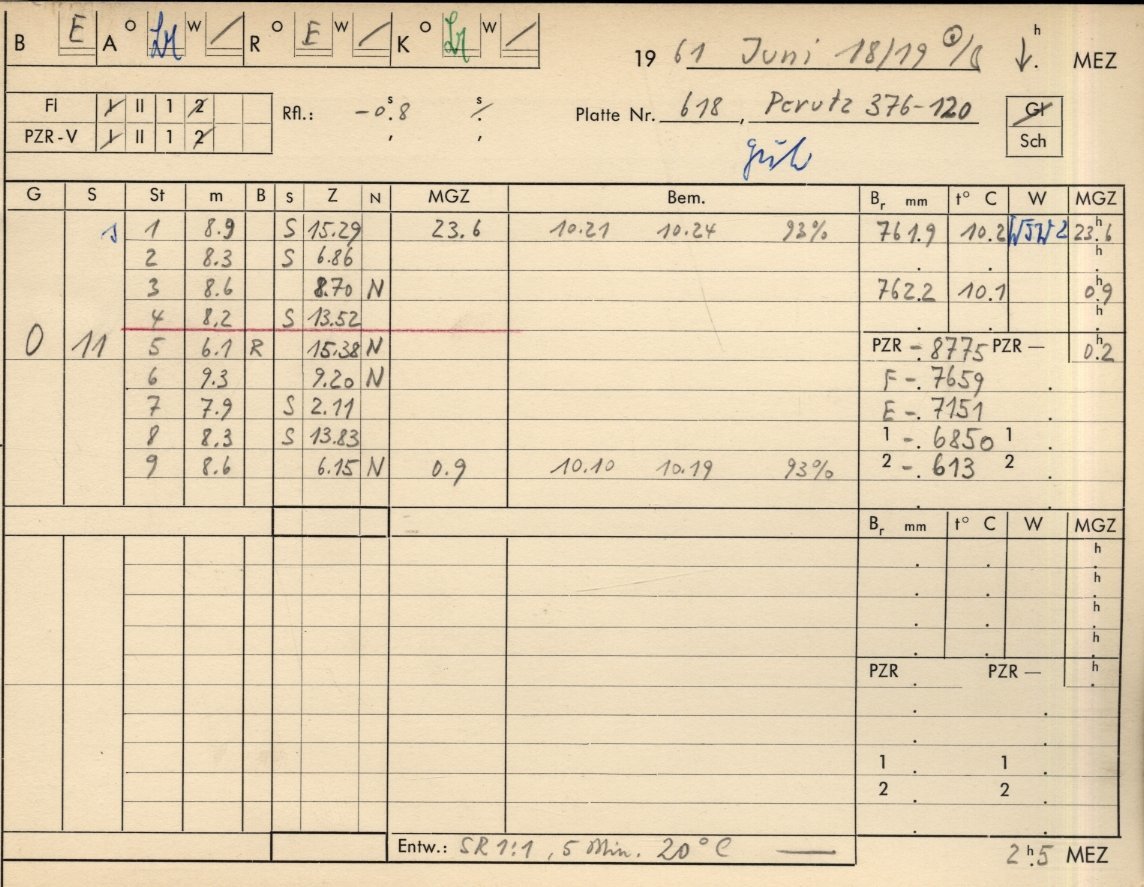 B E A O W / R O E W / K O W /
19 61 Juni 18/19 h MEZ
Fl I II 1 2 Rfl.: -0.8 s s Platte Nr. 618, Perutz 376-120 Gl
PZR-V I II 1 2 Sch
gut
G S St m B s Z N MGZ Bem. Br mm t° C W MGZ
1 8.9 S 15.29 23.6 10.21 10.24 93% 761.9 10.2 WSW 2 23.6 h
2 8.3 S 6.86 h
3 8.6 8.70 N 762.2 10.1 0.9 h
4 8.2 S 13.52 h
0 11 5 6.1 R 15.38 N PZR -.8775 PZR — 0.2 h
6 9.3 9.20 N F -.7659
7 7.9 S 2.11 E -.7151
8 8.3 S 13.83 1 -.6850 1
9 8.6 6.15 N 0.9 10.10 10.19 93% 2 -.613 2
Br mm t° C W MGZ
h
h
h
h
PZR PZR — h
1 1
2 2
Entw.: SR 1:1, 5 Min. 20°C —
2 h.5 MEZ